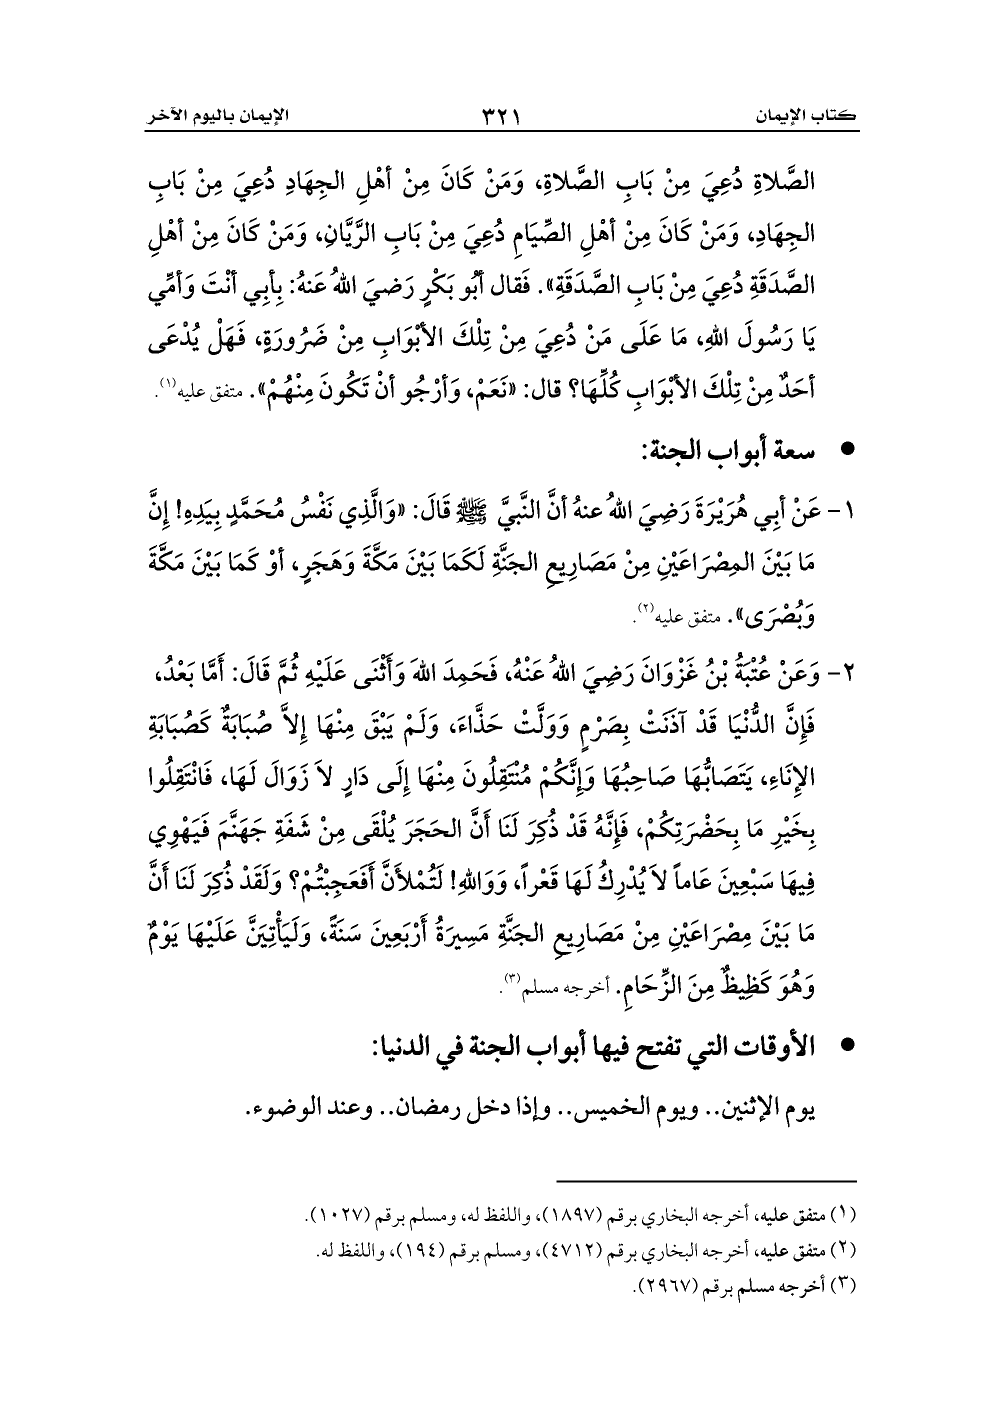 كتاب الإيمان ٣٢١ الإيمان باليوم الآخر
الصَّلاةِ دُعِيَ مِنْ بَابِ الصَّلاةِ، وَمَنْ كَانَ مِنْ أهْلِ الجِهَادِ دُعِيَ مِنْ بَابِ
الجِهَادِ، وَمَنْ كَانَ مِنْ أهْلِ الصِّيَامِ دُعِيَ مِنْ بَابِ الرَّيَّانِ، وَمَنْ كَانَ مِنْ أهْلِ
الصَّدَقَةِ دُعِيَ مِنْ بَابِ الصَّدَقَةِ». فَقال أبُو بَكْرٍ رَضيَ اللهُ عَنهُ: بِأبِي أنْتَ وَأمِّي
يَا رَسُولَ اللهِ، مَا عَلَى مَنْ دُعِيَ مِنْ تِلْكَ الأبْوَابِ مِنْ ضَرُورَةٍ، فَهَلْ يُدْعَى
أحَدٌ مِنْ تِلْكَ الأبْوَابِ كُلِّهَا؟ قال: «نَعَمْ، وَأرْجُو أنْ تَكُونَ مِنْهُمْ». متفق عليه(١).
● سعة أبواب الجنة:
١- عَنْ أبِي هُرَيْرَةَ رَضِيَ اللهُ عنهُ أنَّ النَّبيَّ ﷺ قَالَ: «وَالَّذِي نَفْسُ مُحَمَّدٍ بِيَدِهِ! إنَّ
مَا بَيْنَ المِصْرَاعَيْنِ مِنْ مَصَارِيعِ الجَنَّةِ لَكَمَا بَيْنَ مَكَّةَ وَهَجَرٍ، أوْ كَمَا بَيْنَ مَكَّةَ
وَبُصْرَى». متفق عليه(٢).
٢- وَعَنْ عُتْبَةُ بْنُ غَزْوَانَ رَضِيَ اللهُ عَنْهُ، فَحَمِدَ اللهَ وَأَثْنَى عَلَيْهِ ثُمَّ قَالَ: أَمَّا بَعْدُ،
فَإِنَّ الدُّنْيَا قَدْ آذَنَتْ بِصَرْمٍ وَوَلَّتْ حَذَّاءَ، وَلَمْ يَبْقَ مِنْهَا إلاَّ صُبَابَةٌ كَصُبَابَةِ
الإنَاءِ، يَتَصَابُّهَا صَاحِبُهَا وَإِنَّكُمْ مُنْتَقِلُونَ مِنْهَا إلَى دَارٍ لاَ زَوَالَ لَهَا، فَانْتَقِلُوا
بِخَيْرِ مَا بِحَضْرَتِكُمْ، فَإِنَّهُ قَدْ ذُكِرَ لَنَا أَنَّ الحَجَرَ يُلْقَى مِنْ شَفَةِ جَهَنَّمَ فَيَهْوِي
فِيهَا سَبْعِينَ عَاماً لاَ يُدْرِكُ لَهَا قَعْراً، وَوَاللهِ! لَتُمْلأَنَّ أَفَعَجِبْتُمْ؟ وَلَقَدْ ذُكِرَ لَنَا أَنَّ
مَا بَيْنَ مِصْرَاعَيْنِ مِنْ مَصَارِيعِ الجَنَّةِ مَسِيرَةُ أَرْبَعِينَ سَنَةً، وَلَيَأْتِيَنَّ عَلَيْهَا يَوْمٌ
وَهُوَ كَظِيظٌ مِنَ الزِّحَامِ. أخرجه مسلم(٣).
● الأوقات التي تفتح فيها أبواب الجنة في الدنيا:
يوم الإثنين.. ويوم الخميس.. وإذا دخل رمضان.. وعند الوضوء.
(١) متفق عليه، أخرجه البخاري برقم (١٨٩٧)، واللفظ له، ومسلم برقم (١٠٢٧).
(٢) متفق عليه، أخرجه البخاري برقم (٤٧١٢)، ومسلم برقم (١٩٤)، واللفظ له.
(٣) أخرجه مسلم برقم (٢٩٦٧).